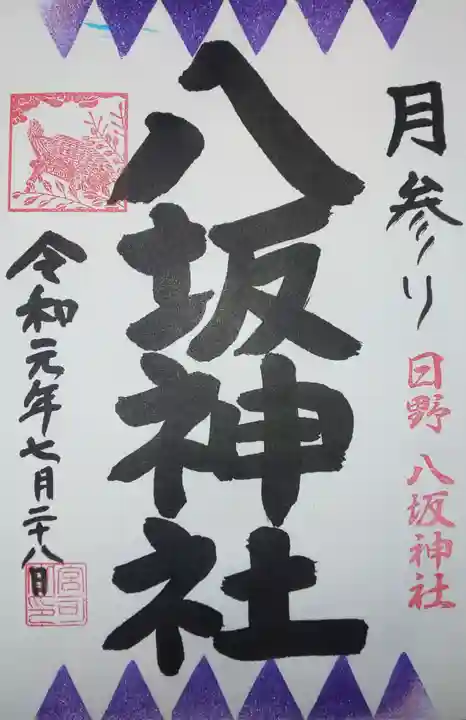 月参り
日野 八坂神社
八坂神社
令和元年七月二十八日